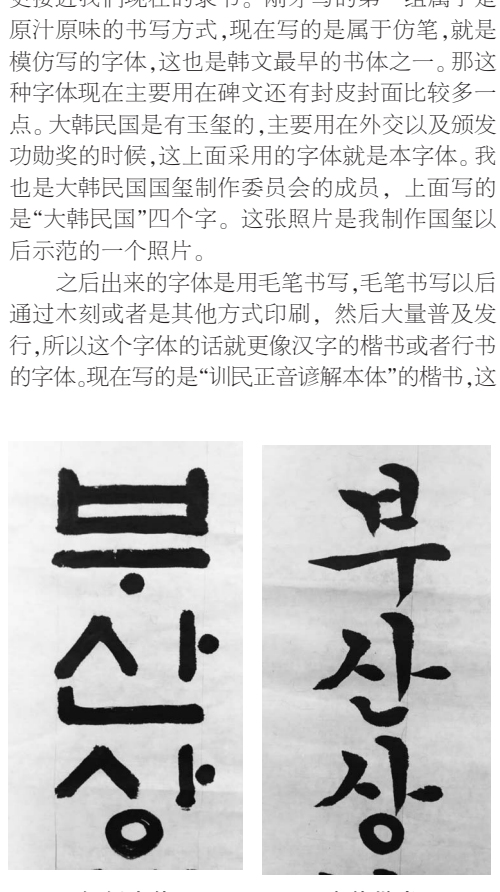 原汁原味的书写方式,现在写的是属于仿笔,就是
模仿写的字体,这也是韩文最早的书体之一。那这
种字体现在主要用在碑文还有封皮封面比较多一
点。大韩民国是有玉玺的,主要用在外交以及颁发
功勋奖的时候,这上面采用的字体就是本字体。我
也是大韩民国国玺制作委员会的成员，上面写的
是“大韩民国”四个字。这张照片是我制作国玺以
后示范的一个照片。
之后出来的字体是用毛笔书写,毛笔书写以后
通过木刻或者是其他方式印刷，然后大量普及发
行,所以这个字体的话就更像汉字的楷书或者行书
的字体。现在写的是“训民正音谚解本体”的楷书,这
부
산
상
부
산
상